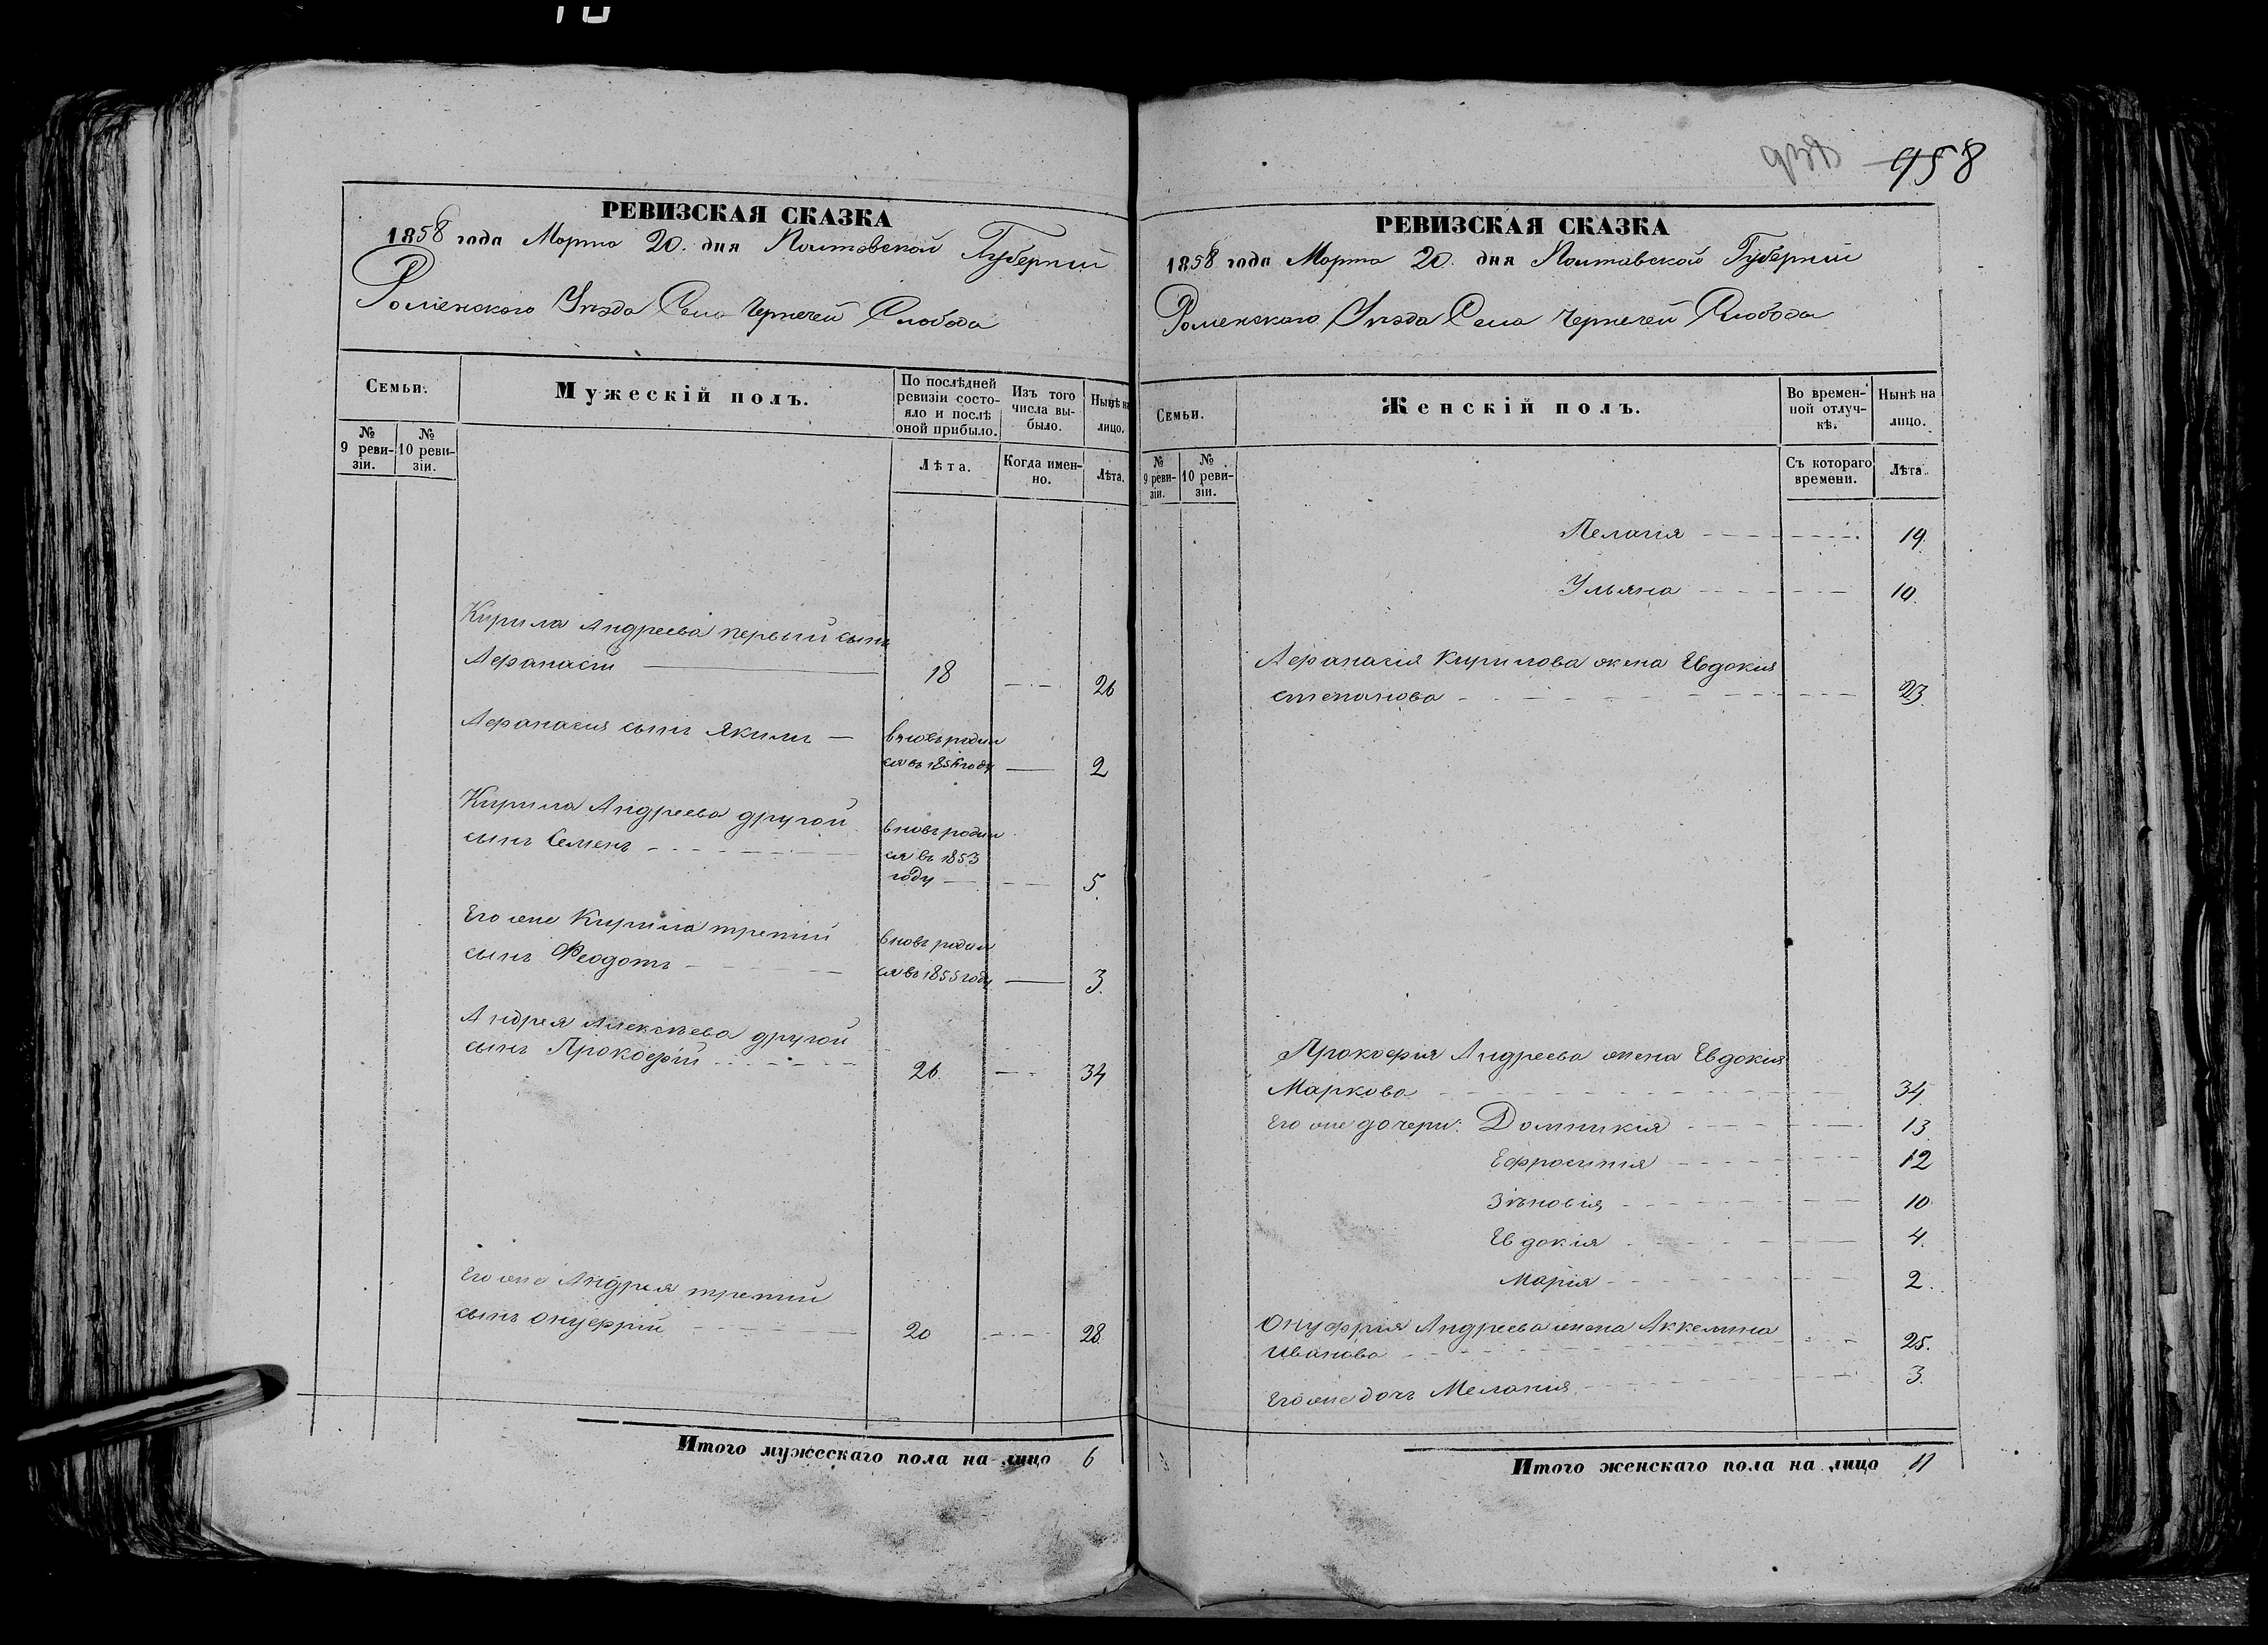 958
РЕВИЗСКАЯ СКАЗКА
1858 года Марта 20. дня Полтавской Губернии
Роменского Уезда Села Чернечей Слободы
Семьи.
Мужескій полъ.
По послѣдней ревизіи состо-
яло и послѣ
оной прибыло.
Изъ того
числа вы-
было.
Нынѣ на
лицо.
№
9 реви-
зіи.
№
10 реви-
зіи.
Лѣта.
Когда имен-
но.
Лѣта.
Кирила Андреева первый сынъ
Афанасій 18 26
Афанасія сынъ Якимъ вновь родил
ся въ 1856 году 2
Кирила Андреева другой
сынъ Семенъ вновь родил
ся въ 1853
году 5
Его же Кирила третій
сынъ Феодотъ вновь родил
ся въ 1855 году 3.
Андрея Алексѣева другой
сынъ Прокофій 26. 34
Его же Андрея третій
сынъ Онуфрій 20 28.
Итого мужескаго пола на лицо 6
РЕВИЗСКАЯ СКАЗКА
1858 года Марта 20. дня Полтавской Губерніи
Роменскаго Уезда Села Чернечей Слободы
Семьи.
Женскій полъ.
Во времен-
ной отлуч-
кѣ.
Нынѣ на
лицо.
№
9 реви-
зіи.
№
10 реви-
зіи.
Съ котораго
времени.
Лѣта.
Пелагія 19.
Ульяна 10.
Афанасія Кирилова жена Евдокія
Степанова 23.
Прокофія Андреева жена Евдокія
Маркова 34
Его же дочери: Домникія 13.
Ефросинія 12
Зѣновія 10
Евдокія 4.
Марія 2.
Онуфрія Андреева жена Аккелина
Иванова 25.
Его же дочь Меланія 3.
Итого женскаго пола на лицо 11